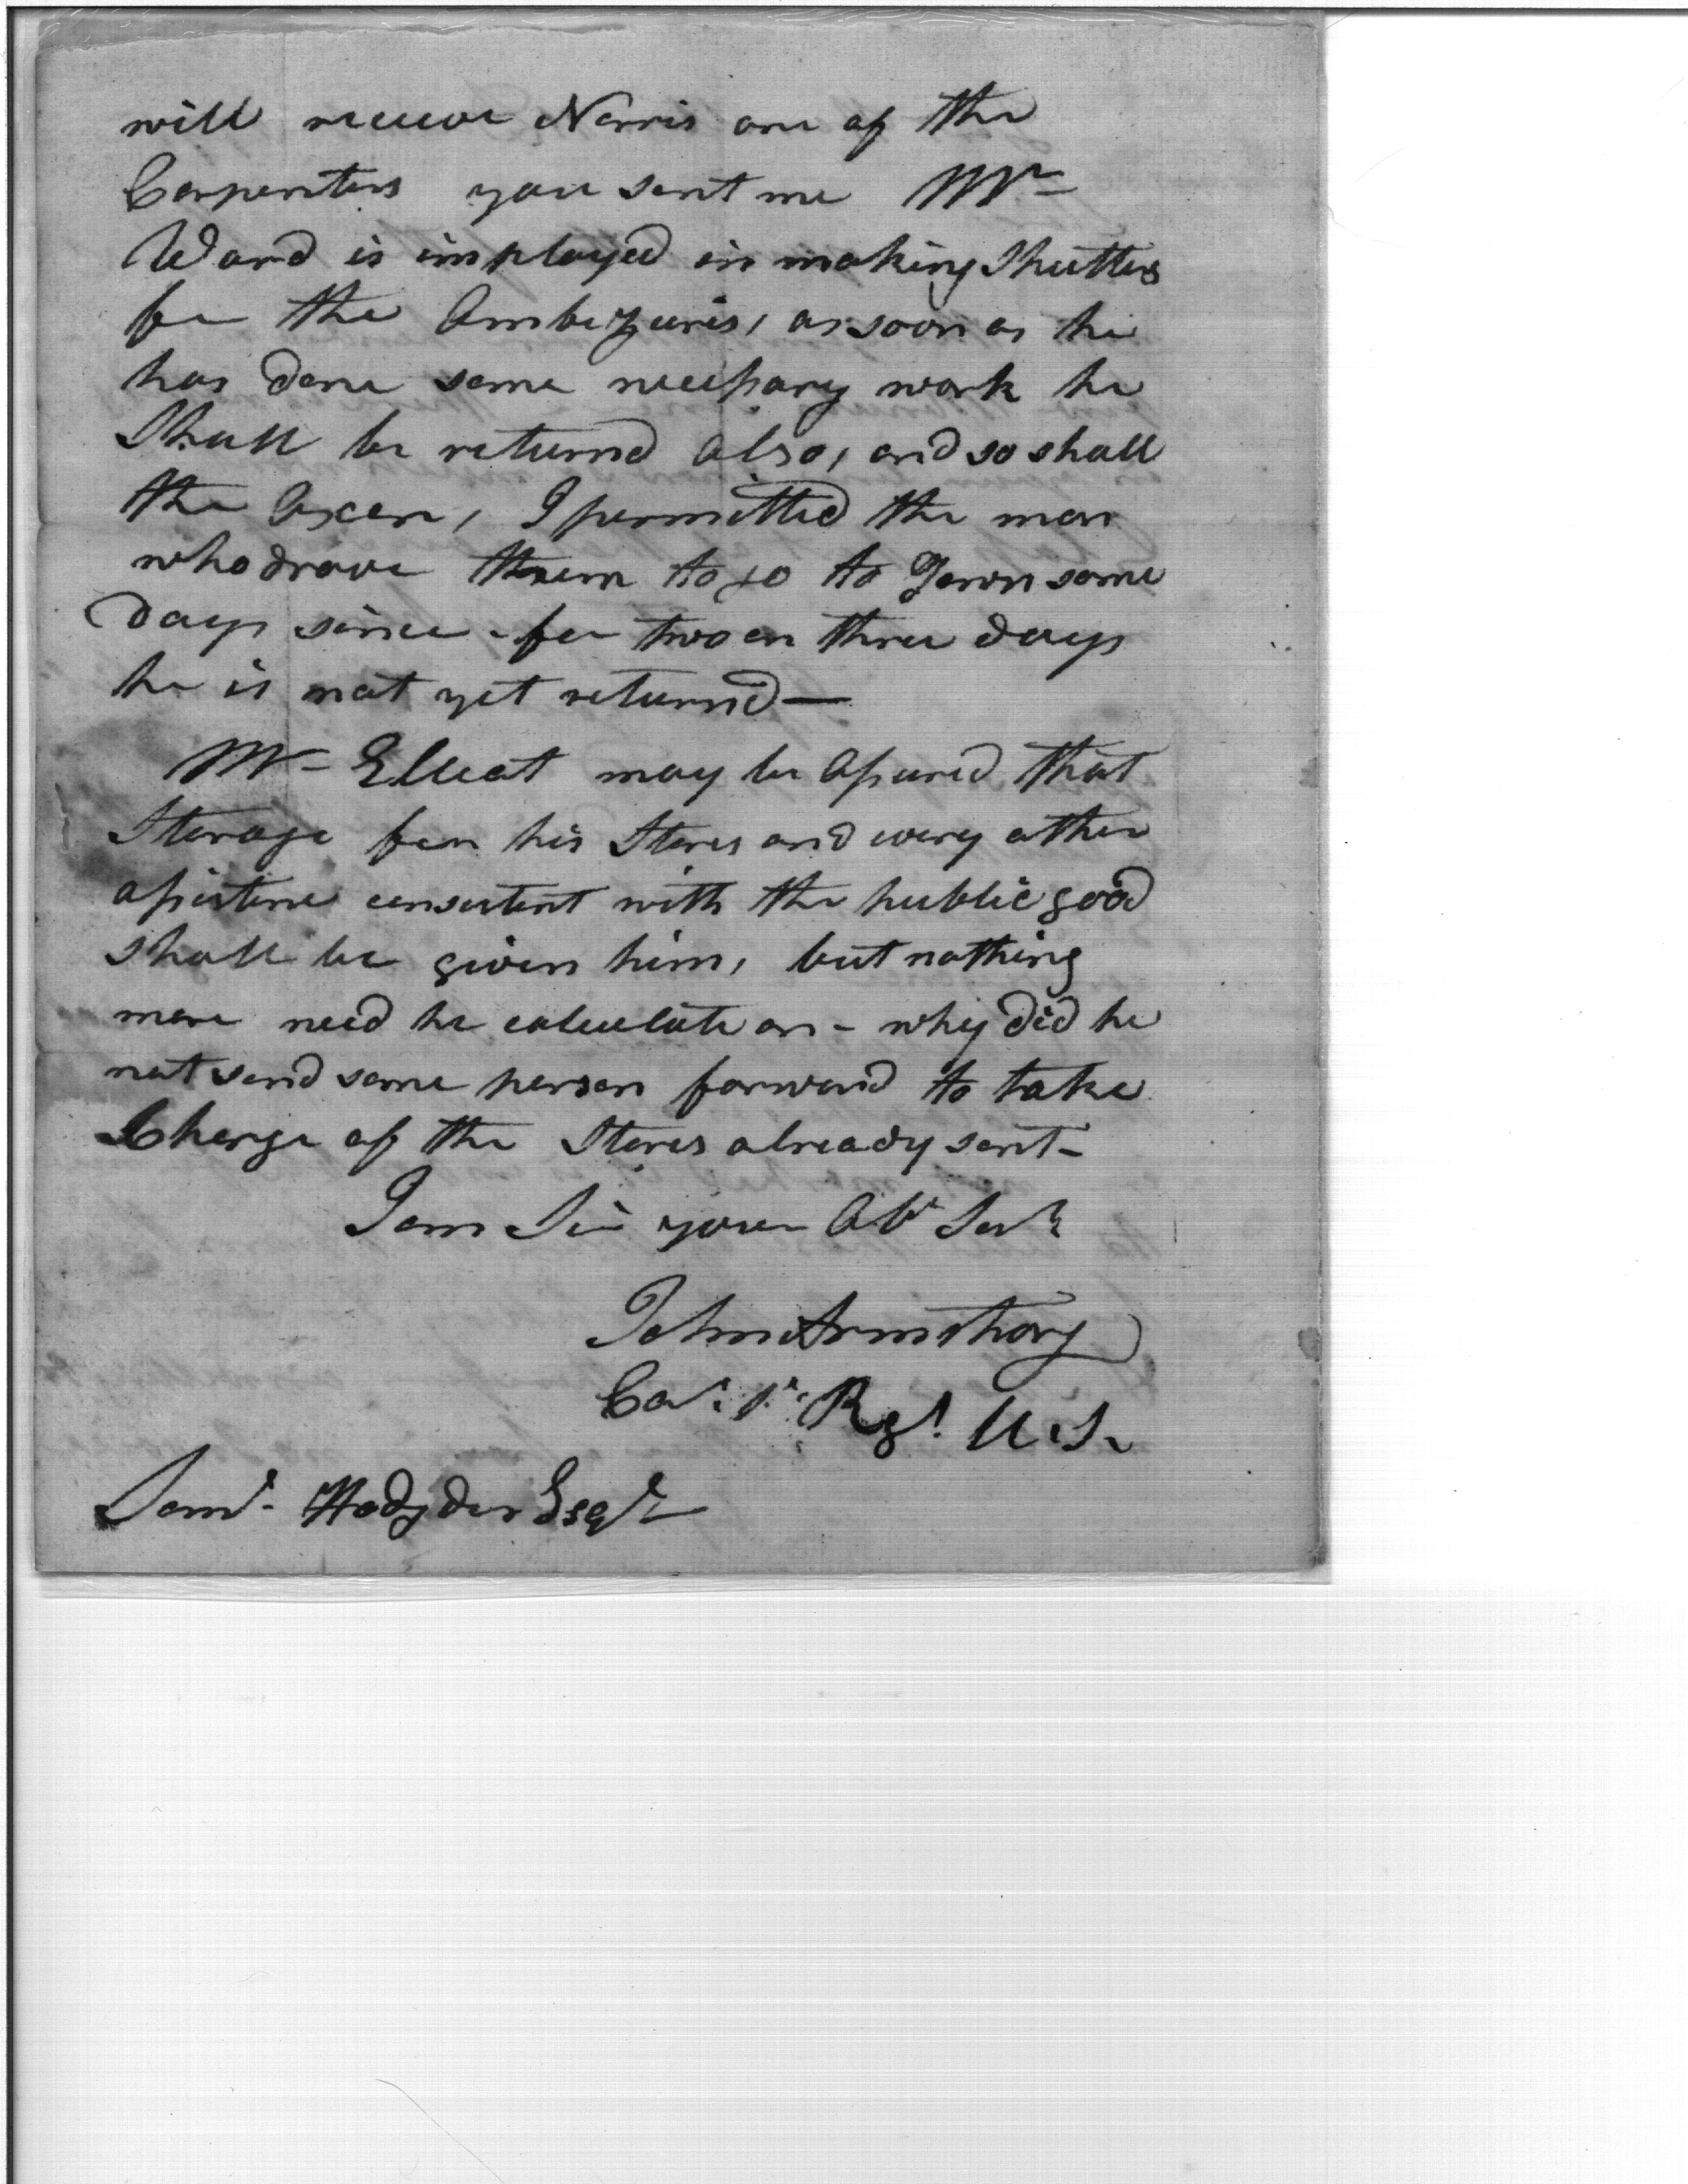 will receive Norris one of the
Carpenters you sent me Mr
Ward is imployed in making Shutters
for the Ambezuris, as soon as he
has done some necessary work he
Shall be returnd also, and so shall
the Oxen, I permitted the man
who drove them to go to Town some
days since - for two or three days
he is not yet returnd —
Mr Elleot may be assured that
Storage for his Stores and every other
assistine consistent with the public good
shall be given him, but nothing
more need he calculate on - why did he
not send some person forward to take
Charge of the Stores already sent -
I am Sir your Obt Sert
John Armstrong
Cap. 1t. Rgt. U.S.
Saml. Hodgden Esqr